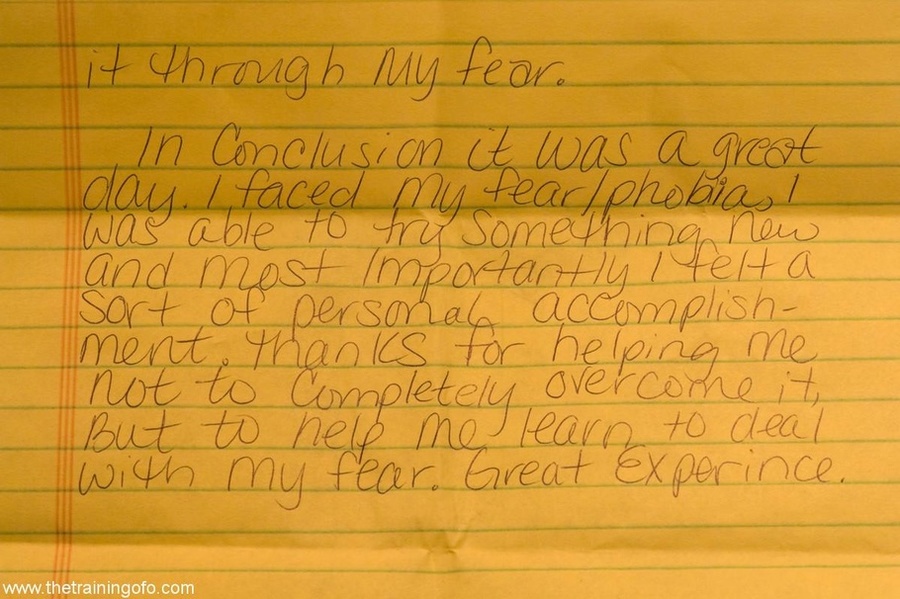 it through My fear.
In Conclusion it was a great
day. I faced My fear/phobia, I
was able to try something New
and most Importantly I felt a
sort of personal accomplish-
ment. Thanks for helping me
not to Completely overcome it,
But to help me learn to deal
with My fear. Great Experince.
www.thetrainingofo.com